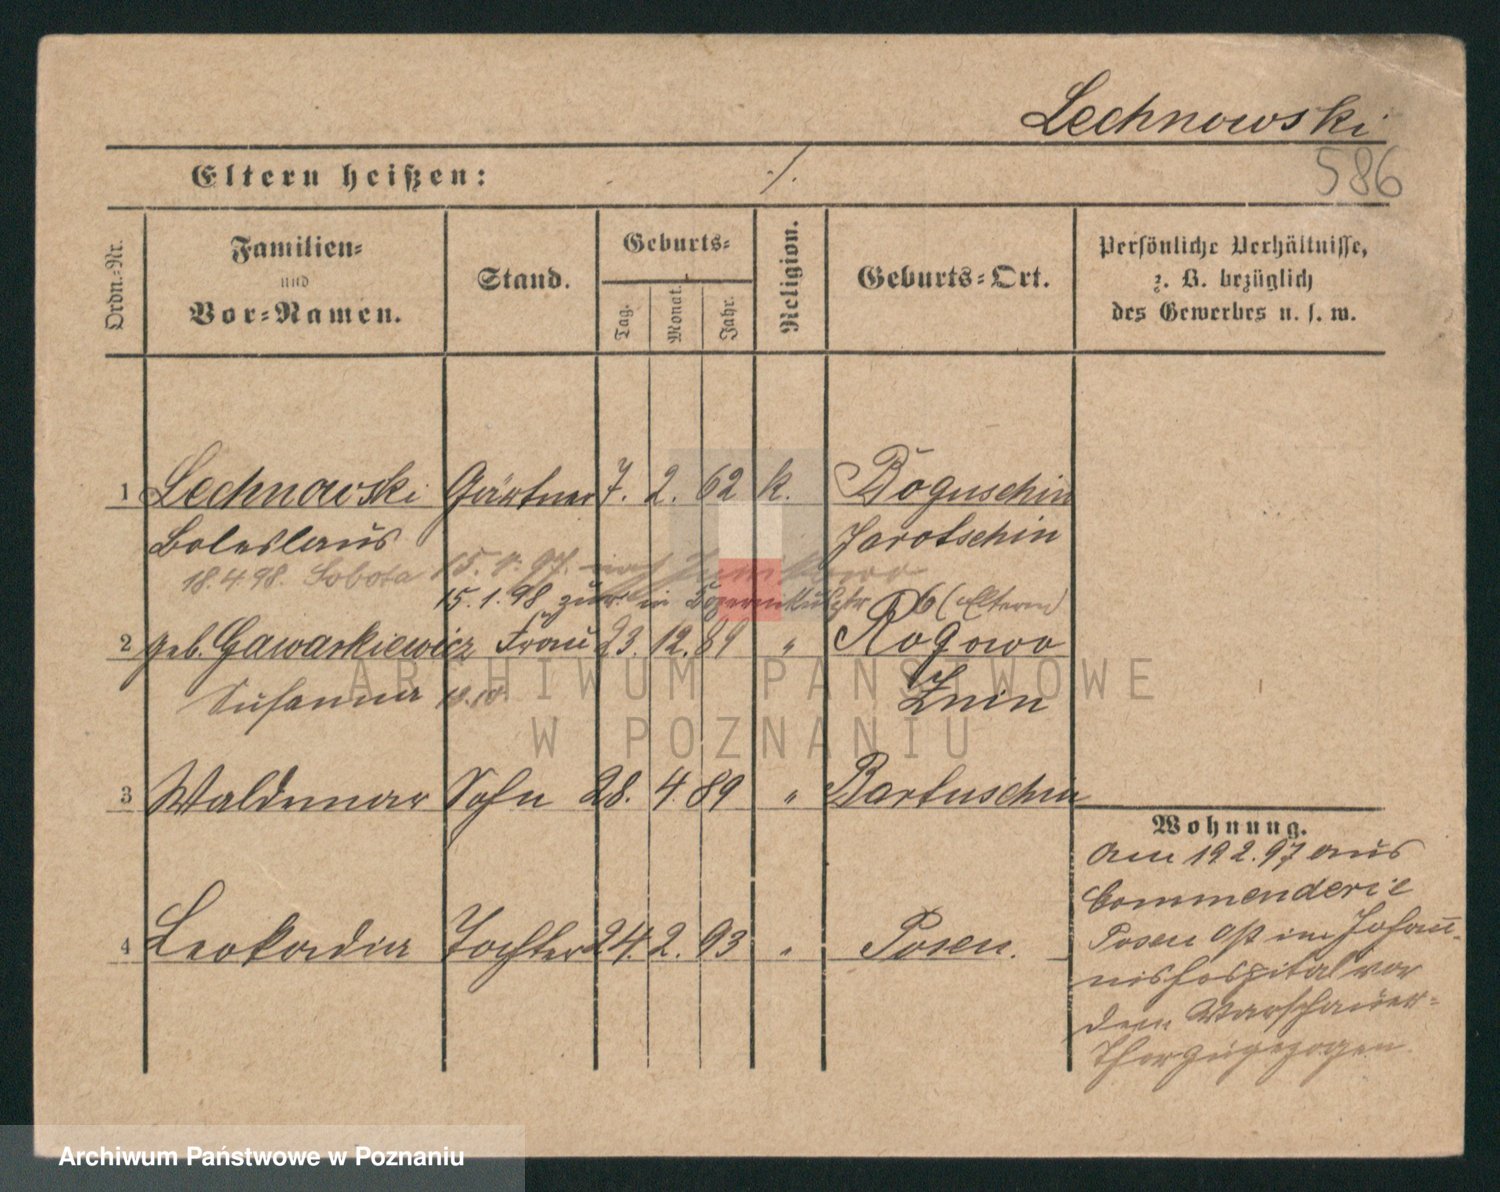 Lechnowski
586
Eltern heißen: ./.
Ordn.-Nr.
Familien-
und
Vor-Namen.
Stand.
Geburts-
Tag.
Monat.
Jahr.
Religion.
Geburts-Ort.
Persönliche Verhältnisse,
z. B. bezüglich
des Gewerbes u. s. w.
1 Lechnowski Gärtner 7. 2. 62 k. Boguschin
Boleslaus Jarotschin
18.4.98. Sobota 15. 97. nach
15.1.98 zur. in 6 (Eltern)
2 geb. Gawarkiewicz Frau 23. 12. 69 " Rogowo
Susanna Znin
3 Waldemar Sohn 28. 4. 89 " Bartuschin
Wohnung.
am 19 2. 97 aus
Commenderie
Posen Ost im Johan̄-
nishospital vor
dem Warschauer-
Thor zugezogen.
4 Leokadia Tochter 24. 2. 93 " Posen.
ARCHIWUM PAŃSTWOWE
W POZNANIU
Archiwum Państwowe w Poznaniu